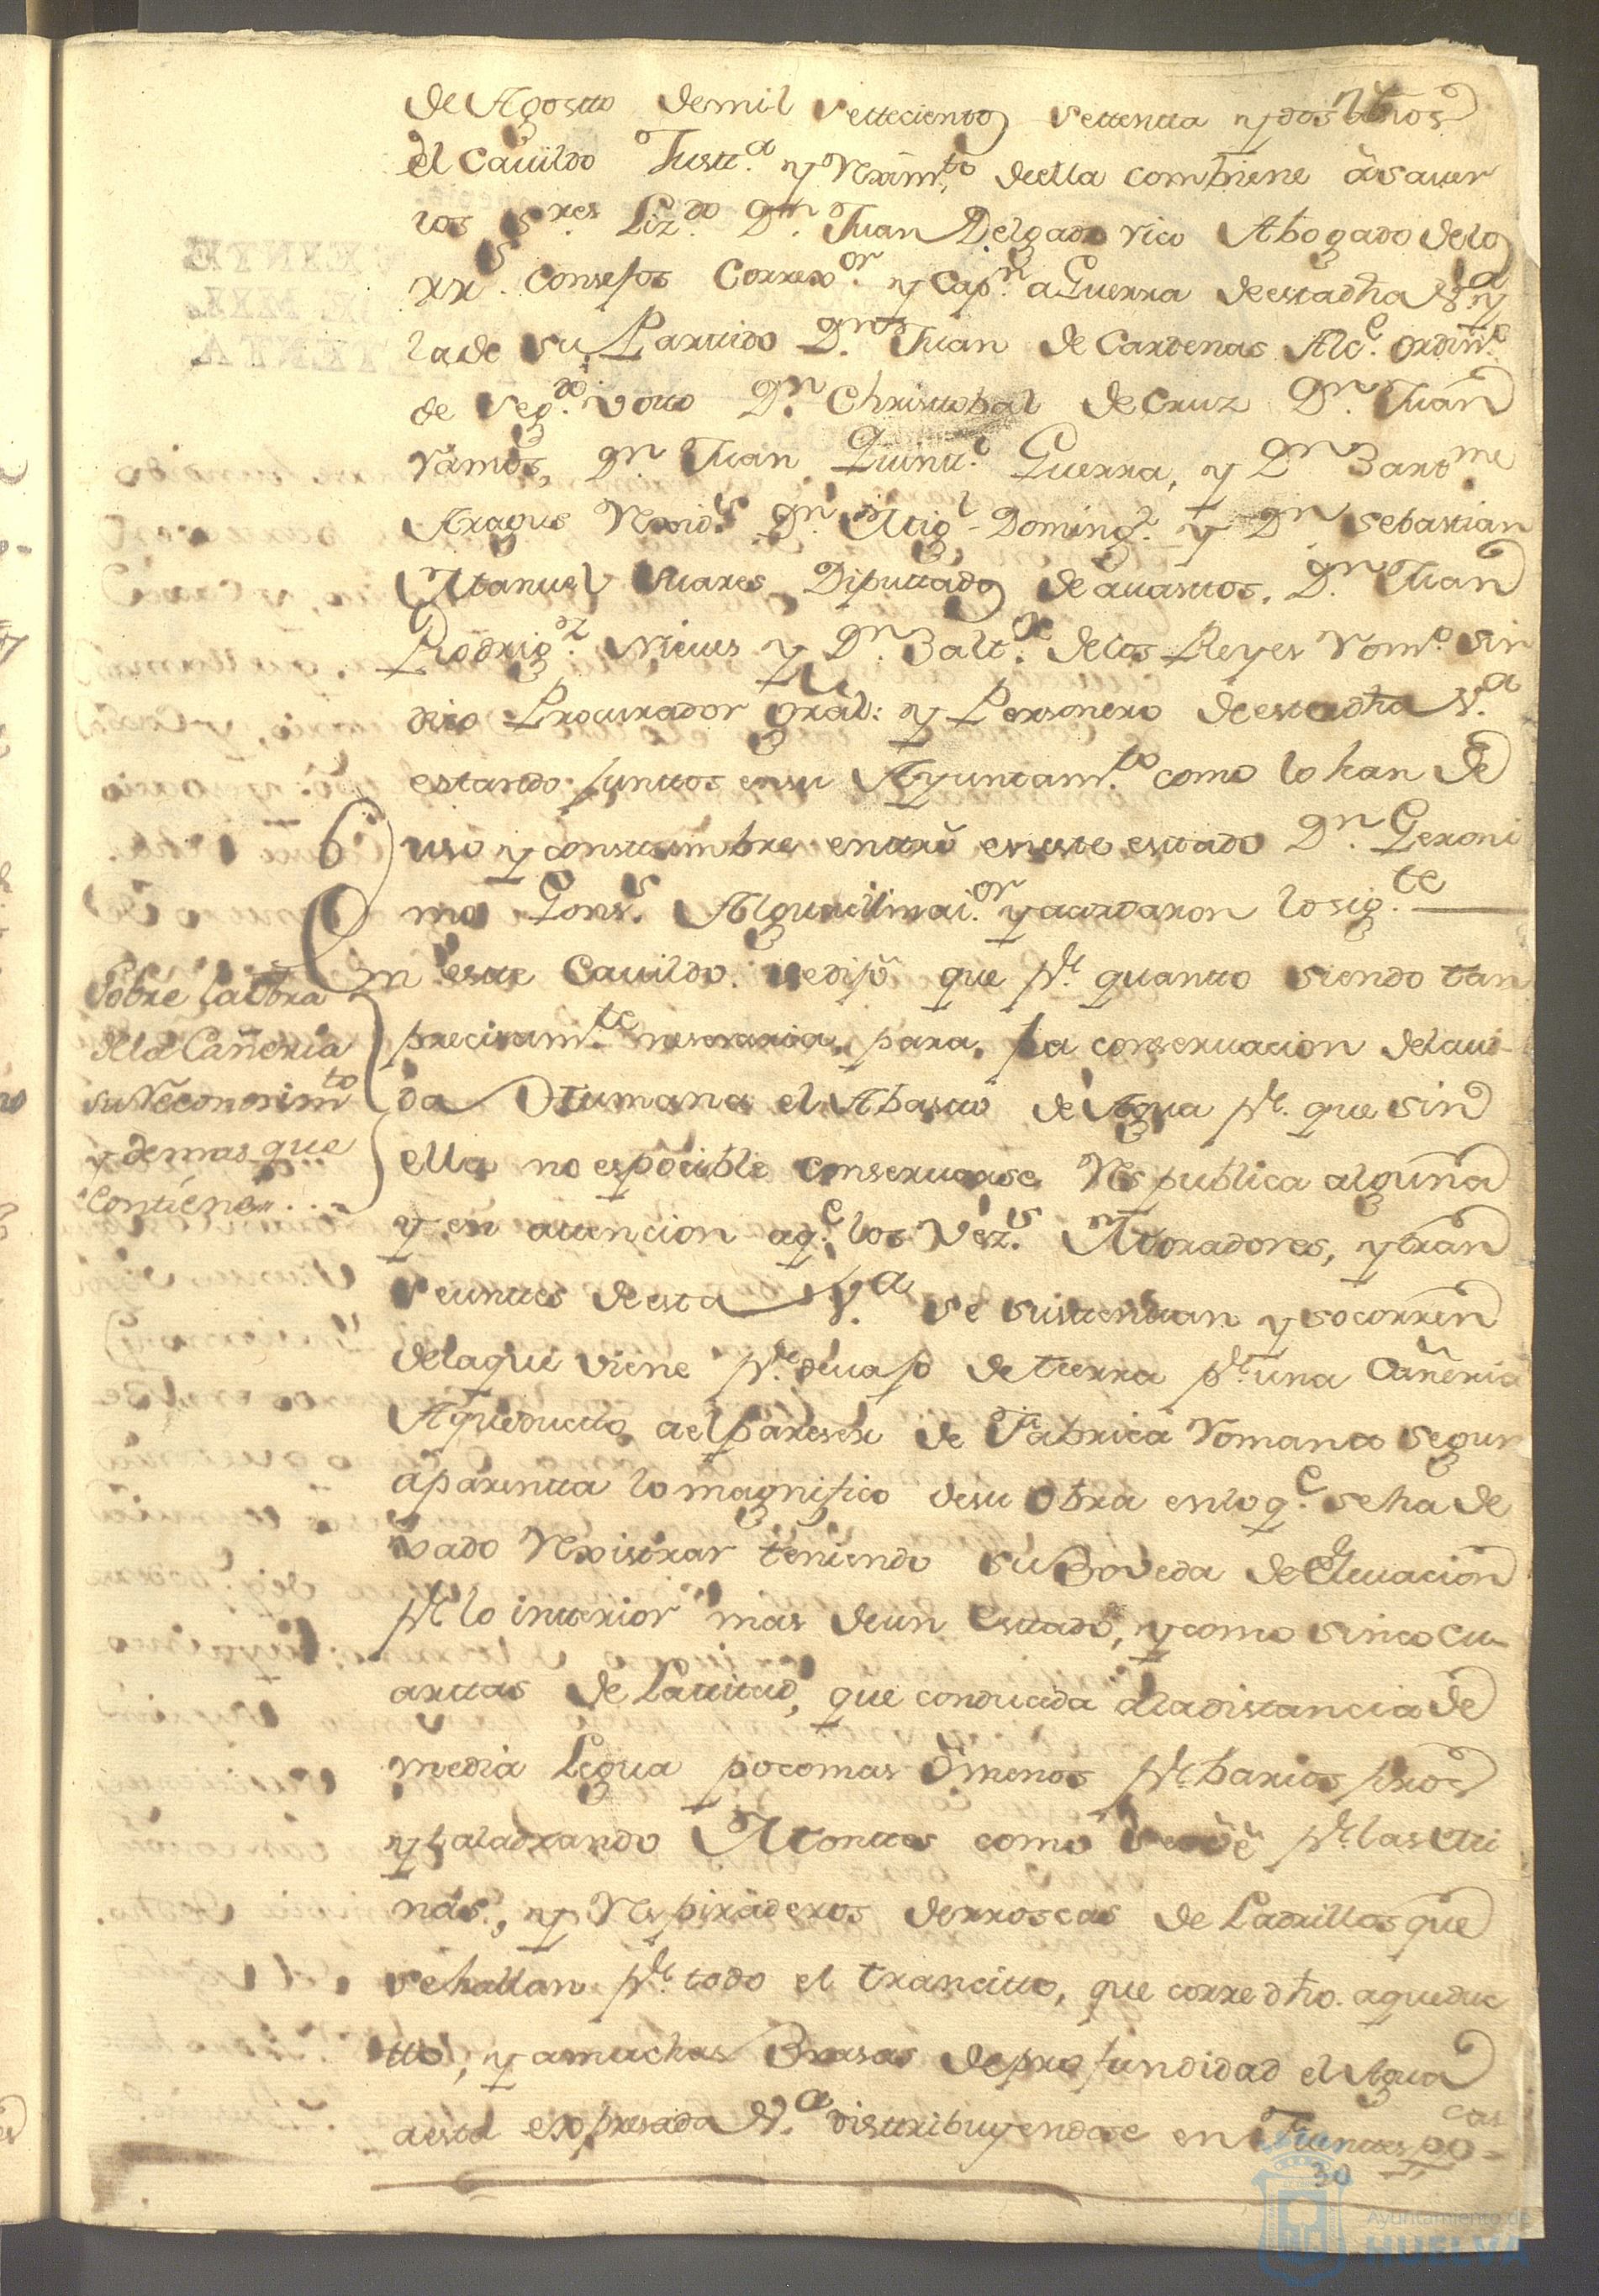 de Agostto de mil settecientos settentta y dos años
el Cavildo Justt.ª y Rexim.to deella combiene à saver
los S.res Liz.do D.n Juan Delgado rico Abogado delos
RR.s Consejos Correx.or y Cap.n a Guerra deesta dha V.ª y
la de su Parttido D.n Juan de Cardenas Alc.e ordin.º
de seg.do votto D.n Christtobal de Cruz D.n Juan
ramos, D.n Juan Quint.º Guerra, y D.n Barth.me
Aragus Rexid.s D.n Mig.l Doming.z y D.n Sebastian
Manuel Suares Diputtados de avasttos. D.n Juan
Rodrig.z Nieves y D.n Balt.r delos Reyes Rom.º Sin
dico Procurador Gral: y Personero deesta dha V.ª
estando junttos ensu Ayuntam.to como lo han de
6) uso y consttumbre enttró eneste esttado D.n Geroni
mo Gons.s Alguacil mai.or y acordaron lo sig.te
En estte Cavildo. sedijo que p.r quantto siendo tan
Sobre la Obra
dela Cañeria
su Reconosim.to
y demas que
contiene...
precisam.te nesesaria, para, la conservacion dela vi-
da Humana el Abastto de Agua p.r que sin
ella no es pocible conservarse Republica alguna
y en attencion aq.e los Vez.s Moradores, y tran
seunttes deesta V.ª se susttenttan y socorren
dela que viene p.r devajo de tierra p.r una Cañeria
Aqueductto, ael pareser de Fabrica Romana segun
aparentta lo magnifico desu Obra enlo q.e se ha de
xado Rexistrar teniendo su Boveda de Elevacion
p.r lo intterior mas deun Esttado, y como sinco cu-
arttas de Lattitud, que conducida ala distancia de
media Legua poco mas ò menos p.r barios sitios
y taladrando Monttes como se vè p.r las Mi
nas, y Respiraderos de rroscas de Ladrillos que
se hallan p.r todo el trancitto, que corre dho. aqueduc
tto, y a muchas Brasas de profundidad el Agua
aesta expresada V.ª disttribuyendose en Fuenttes po-
cas
30
Ayuntamiento de
HUELVA